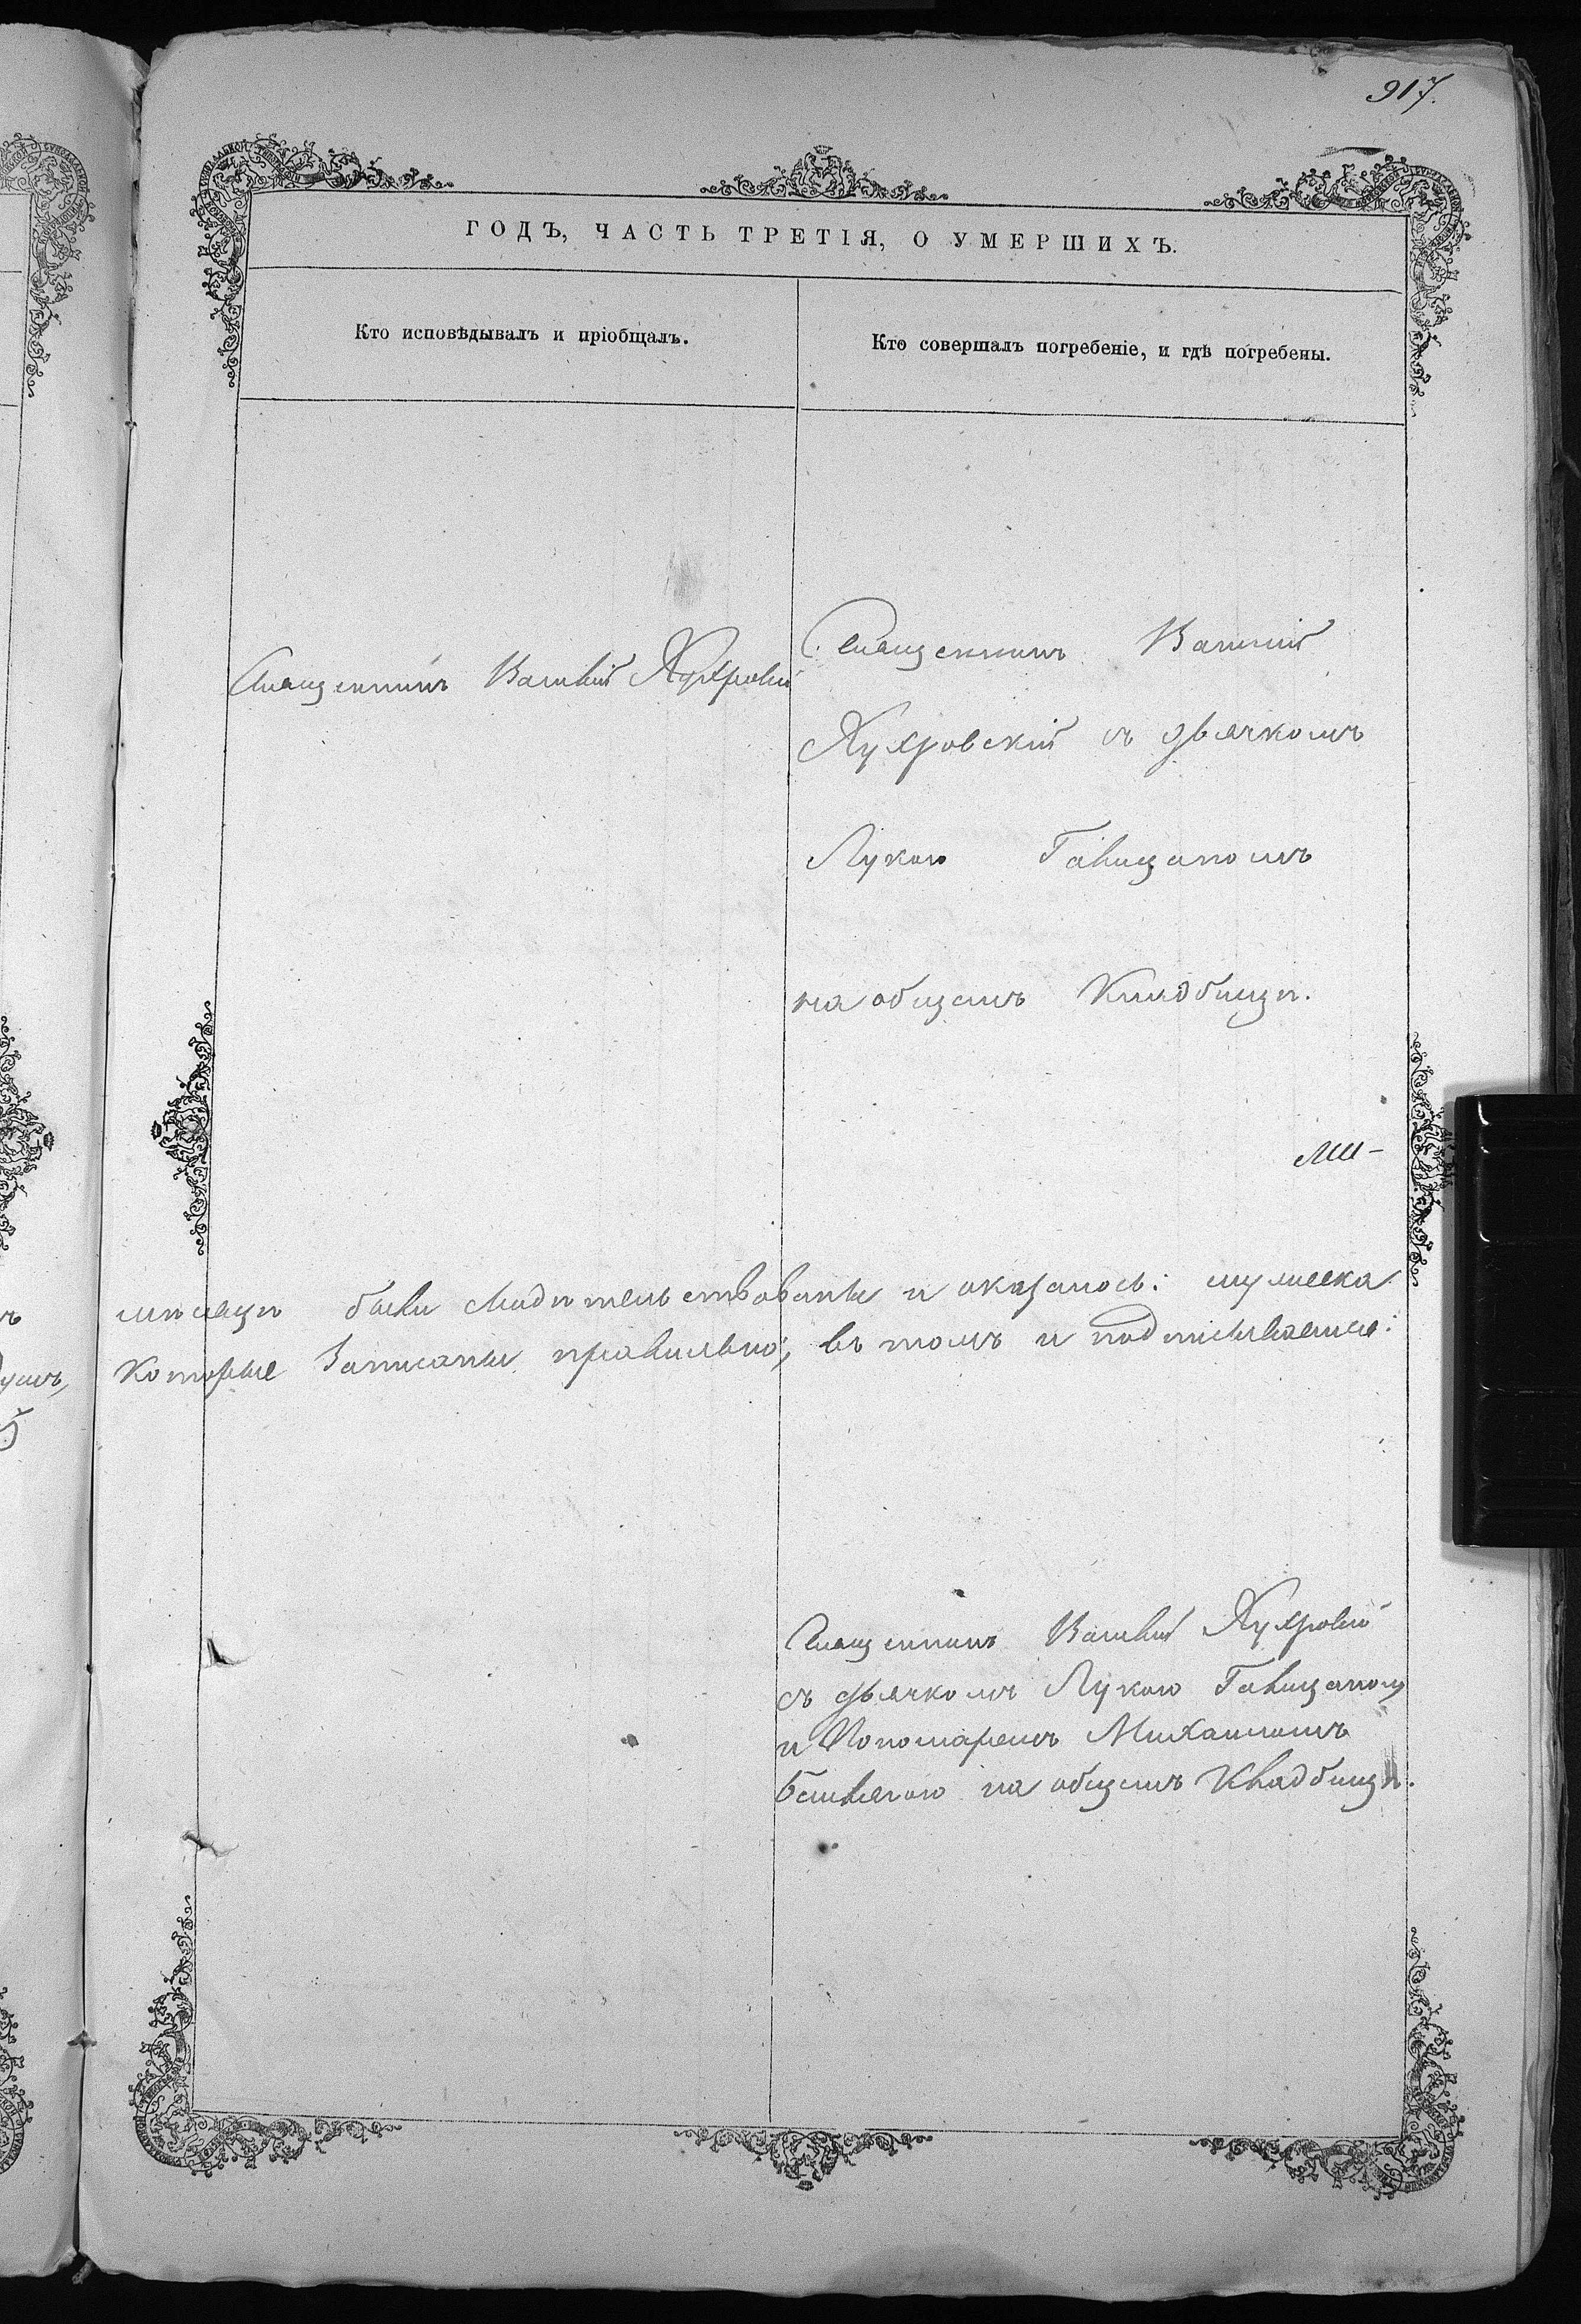 917.
ГОДЪ, ЧАСТЬ ТРЕТІЯ, О УМЕРШИХЪ.
Кто исповѣдывалъ и пріобщалъ.
Кто совершалъ погребеніе, и гдѣ погребены.
Священникъ Василій
Священникъ Василій
съ дьячкомъ
Лукою
на общемъ Кладбищѣ.
мѣсяцѣ были свидѣтельствованы и оказалось: мужеска
Которые Записаны правильно; въ томъ и подписываемся:
Священникъ Василій
съ дьячкомъ Лукою
и Пономаремъ Михаиломъ
на общемъ Кладбищѣ.